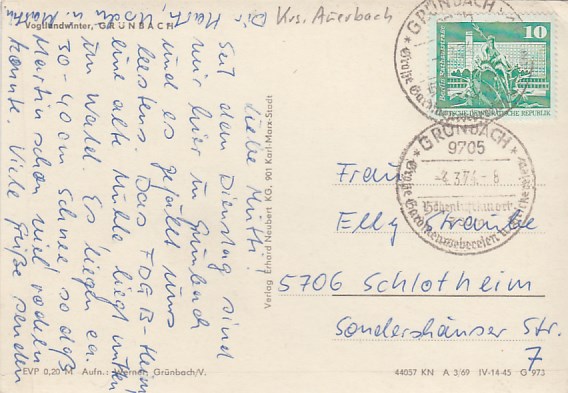 Vogtlandwinter, GRÜNBACH
Krs. Auerbach
Liebe Mutti!
Seit dem Dienstag sind
wir hier in Grünbach
und es gefällt uns
bestens. Das FDGB-Heim
eine alte Mühle liegt mitten
im Wald. Es liegen ca.
30-40 cm Schnee so daß
Martin schon viel rodeln
konnte. Viele Grüße senden
Dir Hartm., 
u. Martin
Verlag Erhard Neubert KG, 901 Karl-Marx-Stadt
10
Berlin, Rathausstrasse
DEUTSCHE DEMOKRATISCHE REPUBLIK
GRÜNBACH
GRÜNBACH
9705
-4.3.74.-8
Höhenluftkurort
Große Gardinenwebereien u.
Frau
Elly Straube
5706 Schlotheim
Sondershäuser Str.
7
EVP 0,20 M Aufn.: Werner, Grünbach/V.
44057 KN A 3/69 IV-14-45 G 973